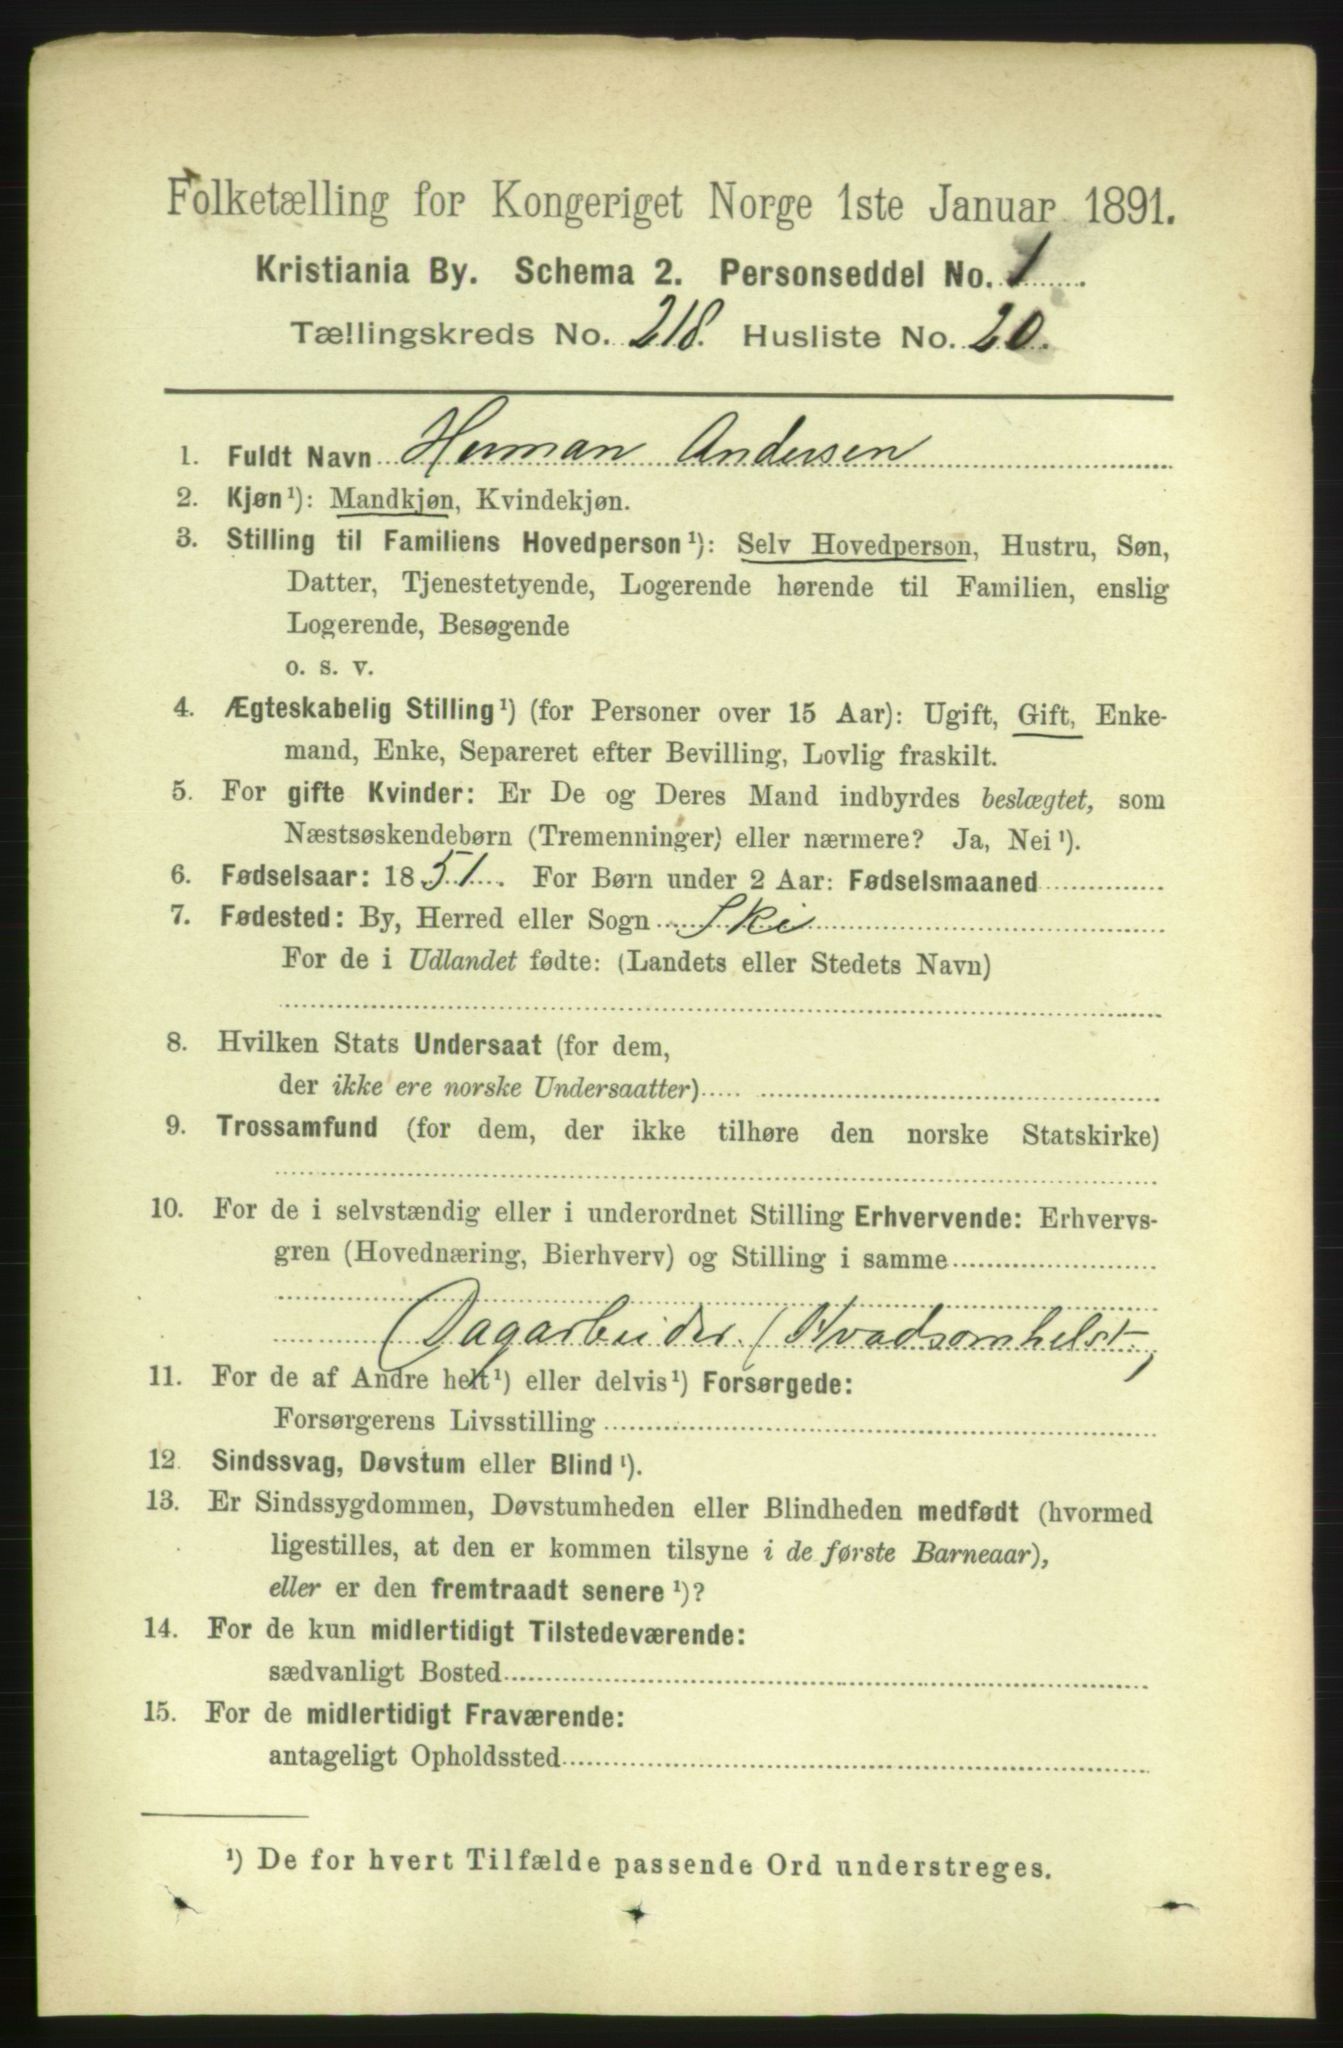 Folketælling for Kongeriget Norge 1ste Januar 1891.
Kristiania By. Schema 2. Personseddel No. 1
Tællingskreds No. 218. Husliste No. 20.
1. Fuldt Navn Herman Andersen
2. Kjøn ¹): Mandkjøn, Kvindekjøn.
3. Stilling til Familiens Hovedperson ¹): Selv Hovedperson, Hustru, Søn,
Datter, Tjenestetyende, Logerende hørende til Familien, enslig
Logerende, Besøgende
o. s. v.
4. Ægteskabelig Stilling ¹) (for Personer over 15 Aar): Ugift, Gift, Enke-
mand, Enke, Separeret efter Bevilling, Lovlig fraskilt.
5. For gifte Kvinder: Er De og Deres Mand indbyrdes beslægtet, som
Næstsøskendebørn (Tremenninger) eller nærmere? Ja, Nei ¹).
6. Fødselsaar: 1851. For Børn under 2 Aar: Fødselsmaaned
7. Fødested: By, Herred eller Sogn Ski
For de i Udlandet fødte: (Landets eller Stedets Navn)
8. Hvilken Stats Undersaat (for dem,
der ikke ere norske Undersaatter)
9. Trossamfund (for dem, der ikke tilhøre den norske Statskirke)
10. For de i selvstændig eller i underordnet Stilling Erhvervende: Erhvervs-
gren (Hovednæring, Bierhverv) og Stilling i samme
Dagarbeider. (Hvadsomhelst)
11. For de af Andre helt ¹) eller delvis ¹) Forsørgede:
Forsørgerens Livsstilling
12. Sindssvag, Døvstum eller Blind ¹).
13. Er Sindssygdommen, Døvstumheden eller Blindheden medfødt (hvormed
ligestilles, at den er kommen tilsyne i de første Barneaar),
eller er den fremtraadt senere ¹)?
14. For de kun midlertidigt Tilstedeværende:
sædvanligt Bosted
15. For de midlertidigt Fraværende:
antageligt Opholdssted
¹) De for hvert Tilfælde passende Ord understreges.